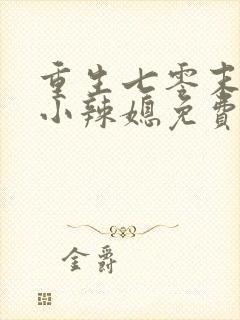 重生七零末
小辣媳免费
金爵